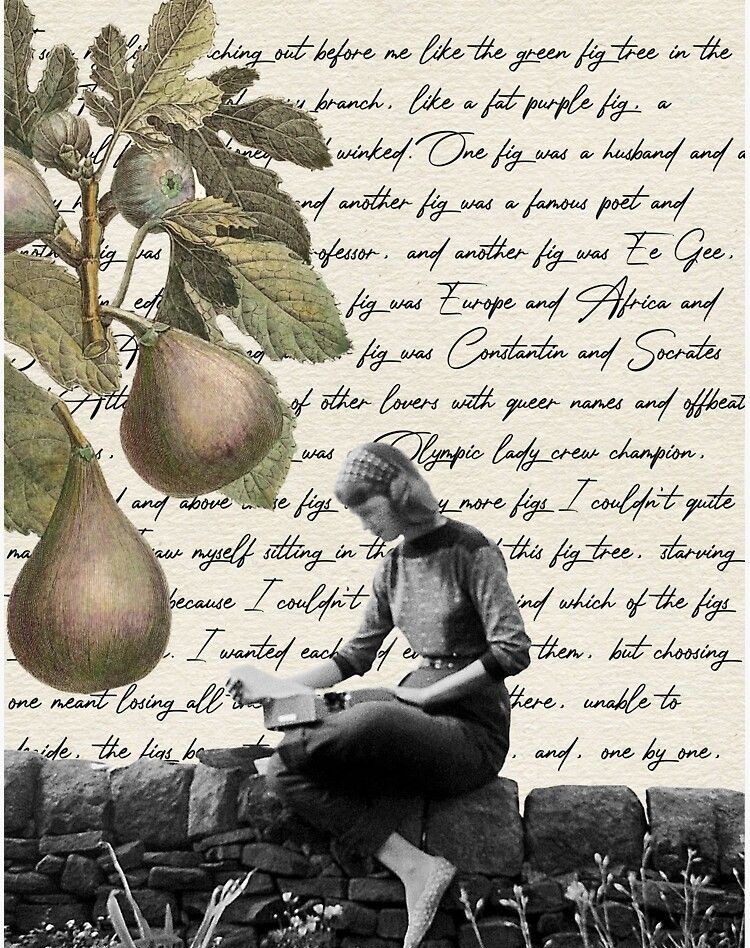 out before me like the green fig tree in the
branch, like a fat purple fig, a
winked. One fig was a husband and a
and another fig was a famous poet and
fig was and another fig was Ee Gee,
fig was Europe and Africa and
fig was Constantin and Socrates
of other lovers with queer names and offbeat
was Olympic lady crew champion,
and above figs more figs I couldn't quite
saw myself sitting in this fig tree, starving
because I couldn't which of the figs
I wanted each them, but choosing
one meant losing all there, unable to
the figs and, one by one,